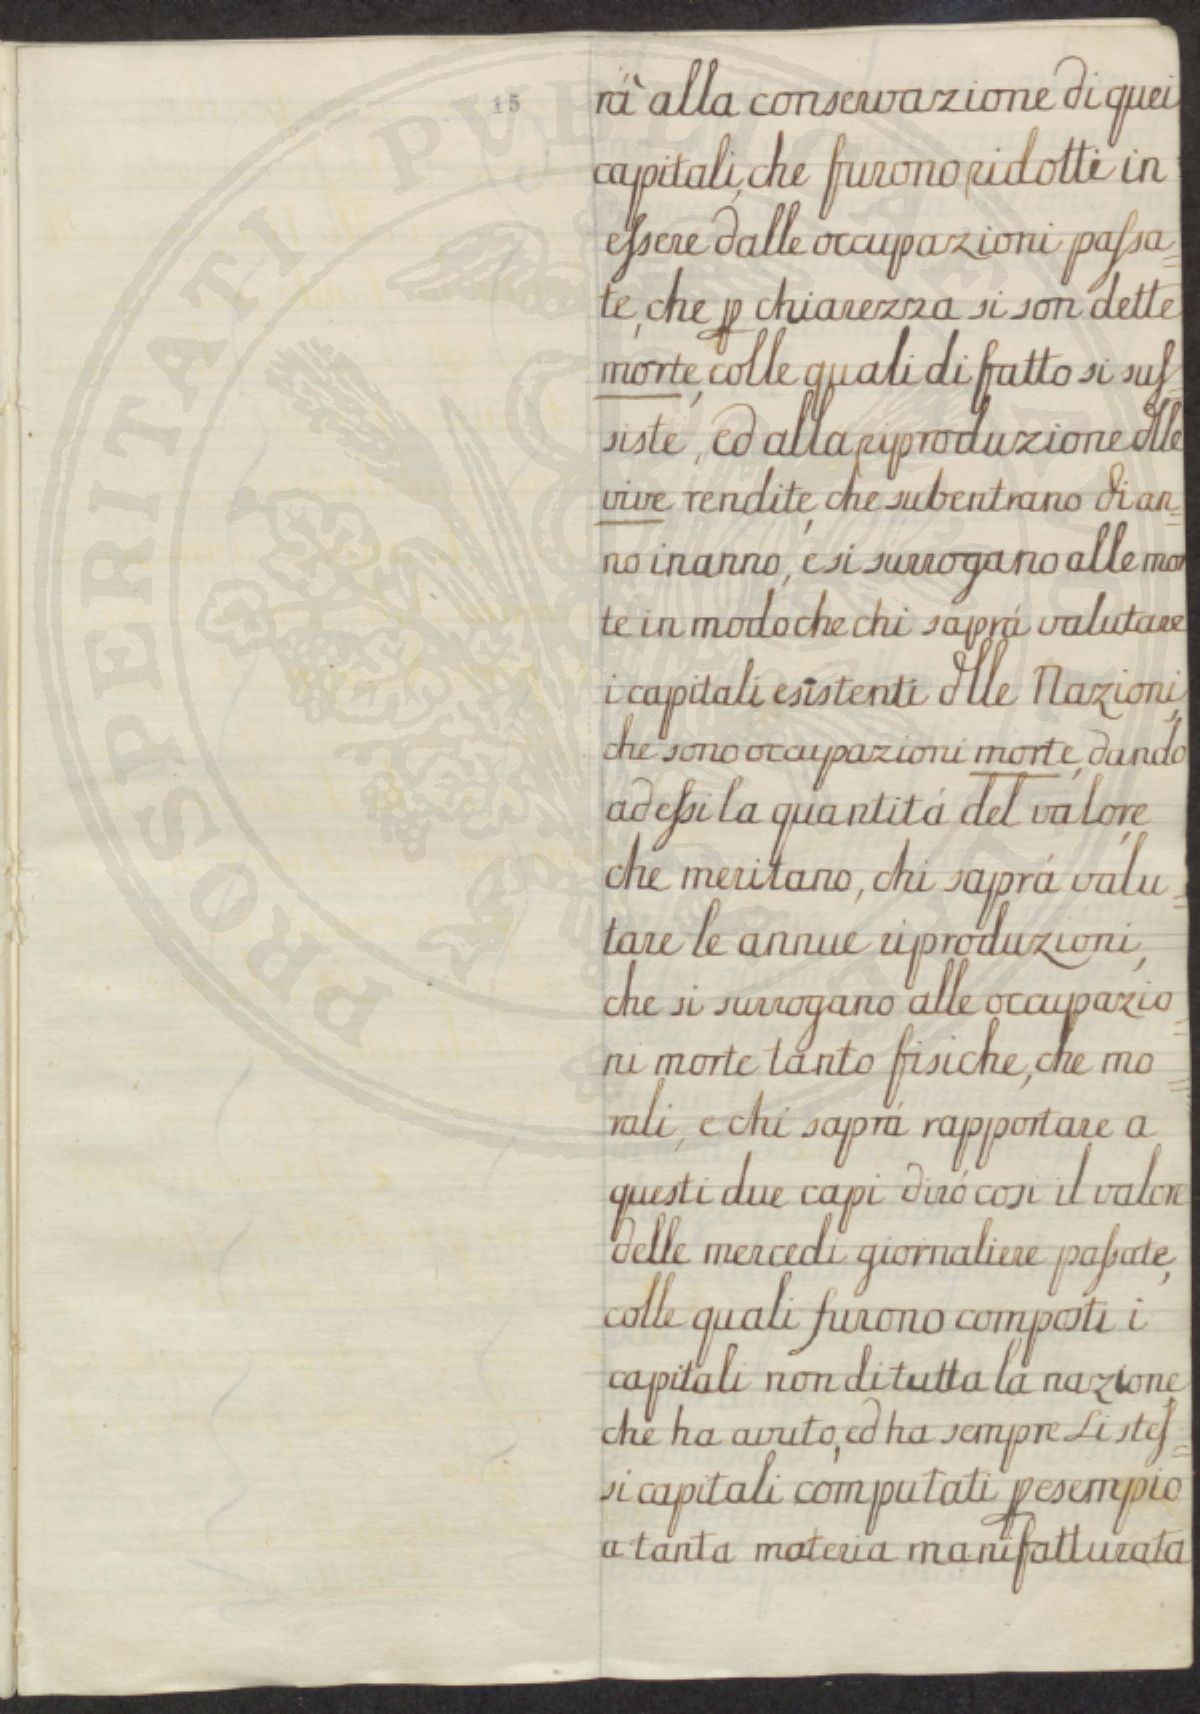 15
PROSPERITATI PUBLICAE AUGENDAE
rá alla conservazione di quei
capitali, che furono ridotti in
essere dalle occupazioni passa=
te, che ꝑ chiarezza si son dette
morte, colle quali di fatto si sus=
siste, ed alla riproduzione dlle
vive rendite, che subentrano di an=
no in anno, e si surrogano alle mor
te in modo che chi saprá valutare
i capitali esistenti dlle Nazioni,
che sono occupazioni morte, dando
ad essi la quantitá del valore,
che meritano, chi saprá valu=
tare le annue riproduzioni,
che si surrogano alle occupazio=
ni morte tanto fisiche, che mo=
rali, e chi saprá rapportare a
questi due capi diró cosi il valore
delle mercedi giornaliere passate,
colle quali furono composti i
capitali non di tutta la nazione,
che ha avuto, ed ha sempre Li stes=
si capitali computati ꝑ esempio
a tanta materia manifatturata